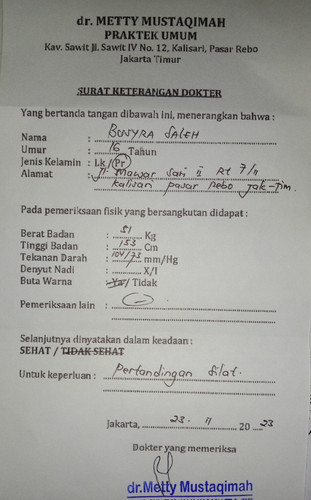 dr. METTY MUSTAQIMAH
PRAKTEK UMUM
Kav. Sawit Jl. Sawit IV No. 12, Kalisari, Pasar Rebo
Jakarta Timur
SURAT KETERANGAN DOKTER
Yang bertanda tangan dibawah ini, menerangkan bahwa :
Nama : BUSYRA SALEH
Umur : 16 Tahun
Jenis Kelamin : Lk / Pr
Alamat : Jl. Mawar Sari II Rt 7/11
Kalisari pasar Rebo Jak-Tim.
Pada pemeriksaan fisik yang bersangkutan didapat :
Berat Badan : 51 Kg
Tinggi Badan : 153 Cm
Tekanan Darah : 104/73 mm/Hg
Denyut Nadi : X/I
Buta Warna : Ya / Tidak
Pemeriksaan lain :
Selanjutnya dinyatakan dalam keadaan :
SEHAT / TIDAK SEHAT
Untuk keperluan : Pertandingan Silat.
Jakarta, 23 - 11 20 23
Dokter yang memeriksa
dr. Metty Mustaqimah